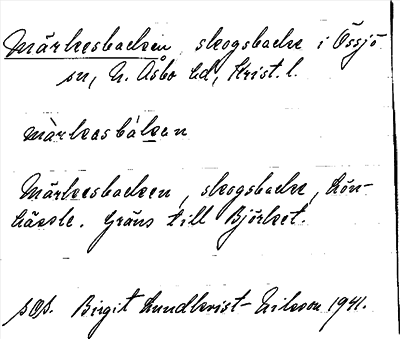 Märkesbacken, skogsbacke i Össjö
sn, N. Åsbo hd, Krist. l.
màrkasbákan
Märkesbacken, skogsbacke, Lön-
hässle. Gräns till Björket.
sOs. Birgit Lundkvist-Nilsson 1941.